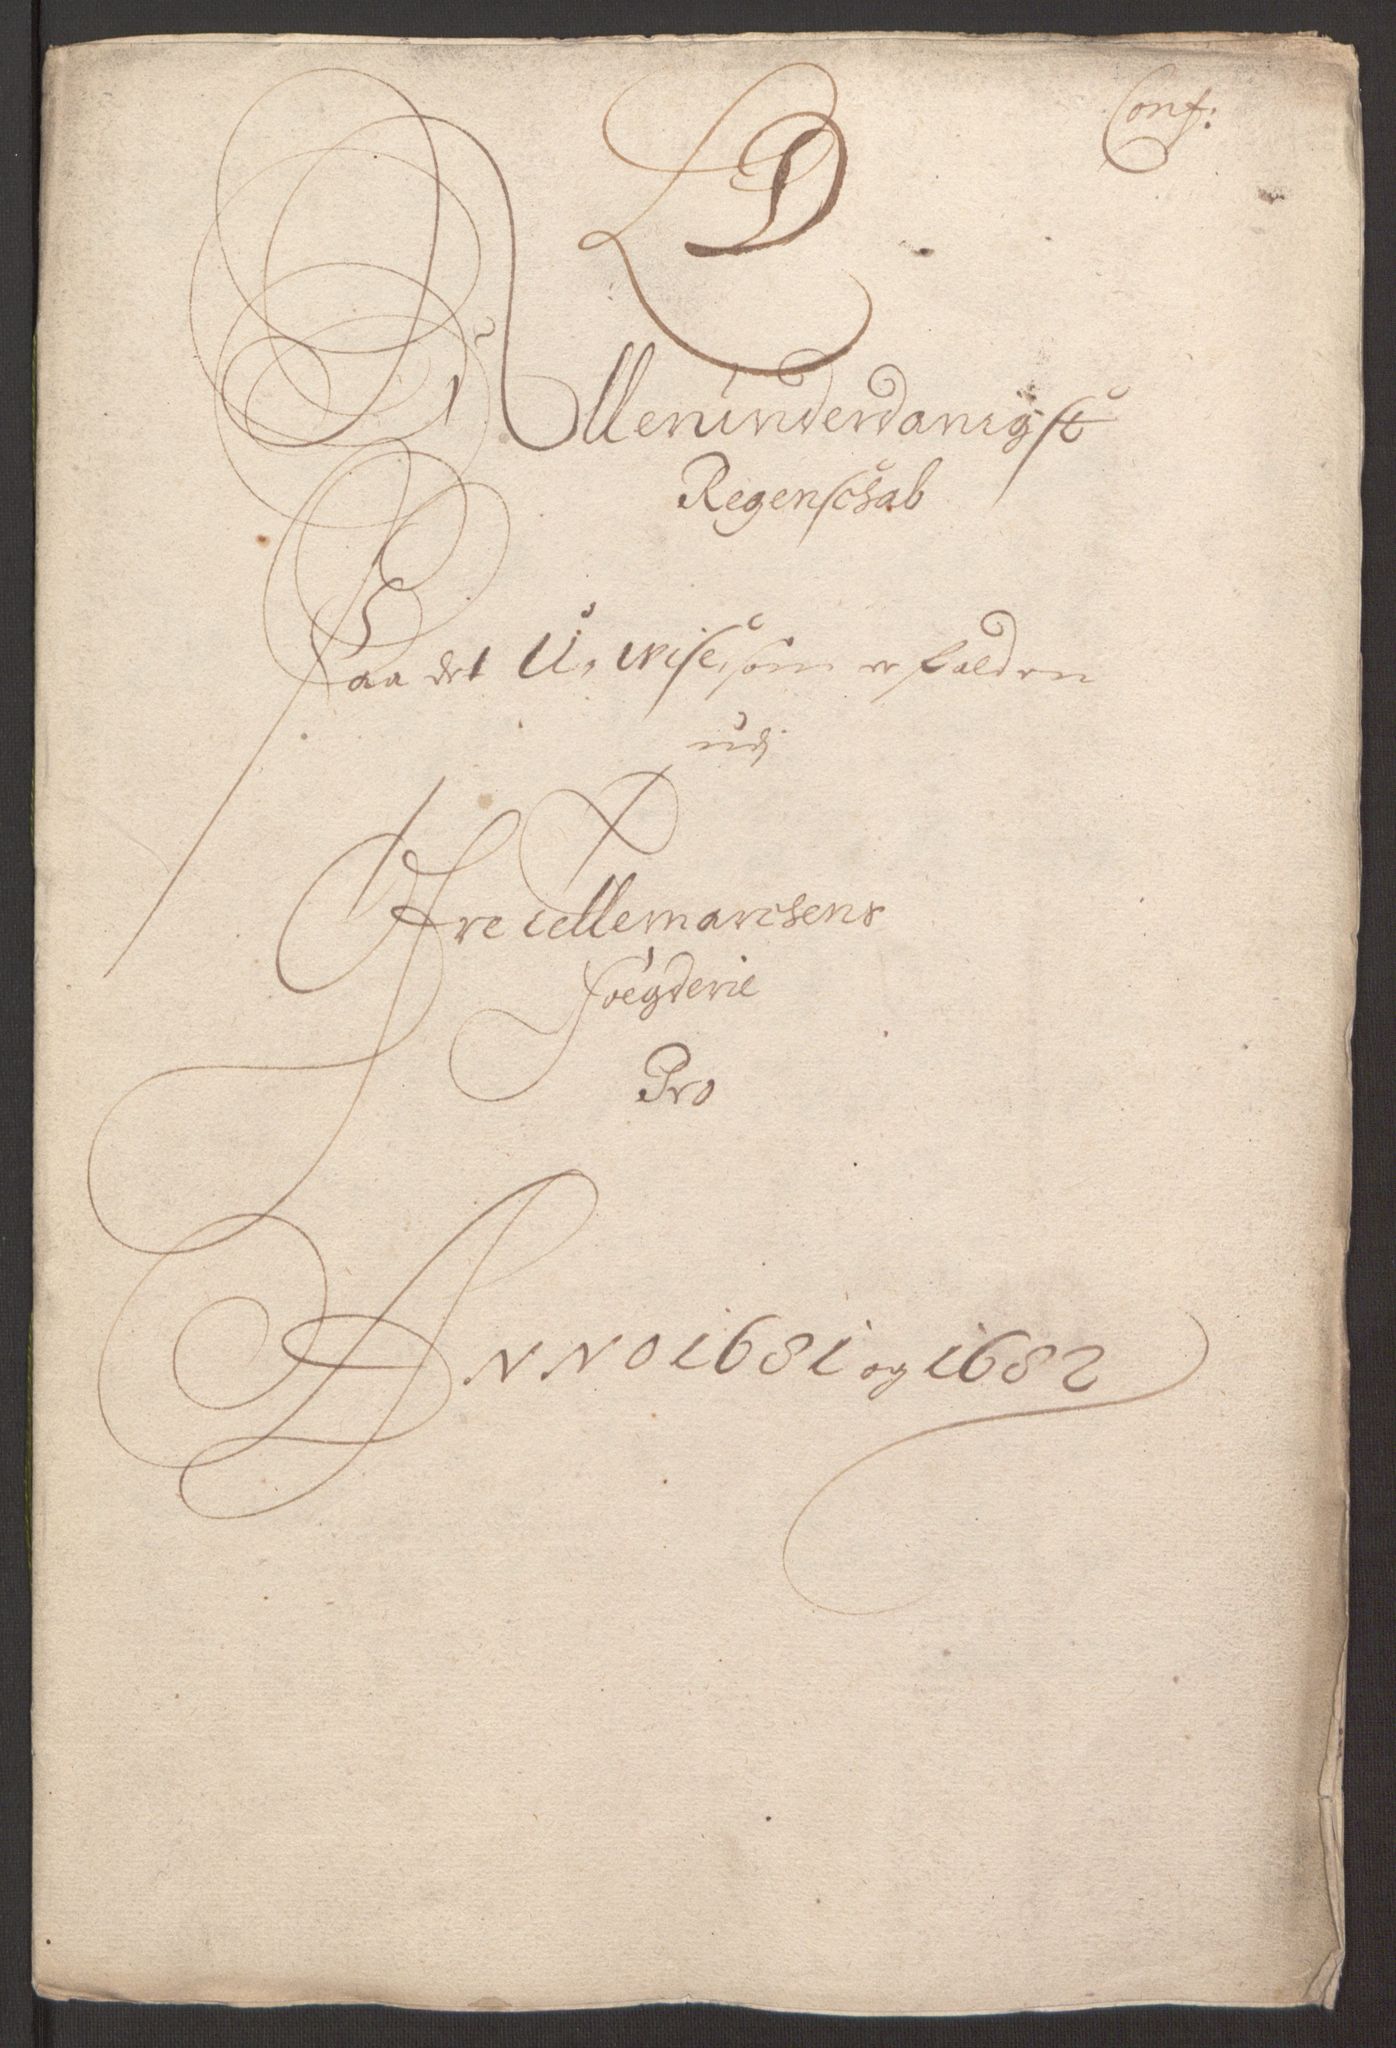 Conf:
LD
Allerunderdanigst
Regenschab
Paa det U, wise, som er falden
udj
Nre tellemarchens
foegderie
Pro
ANNO 1681 og 1682